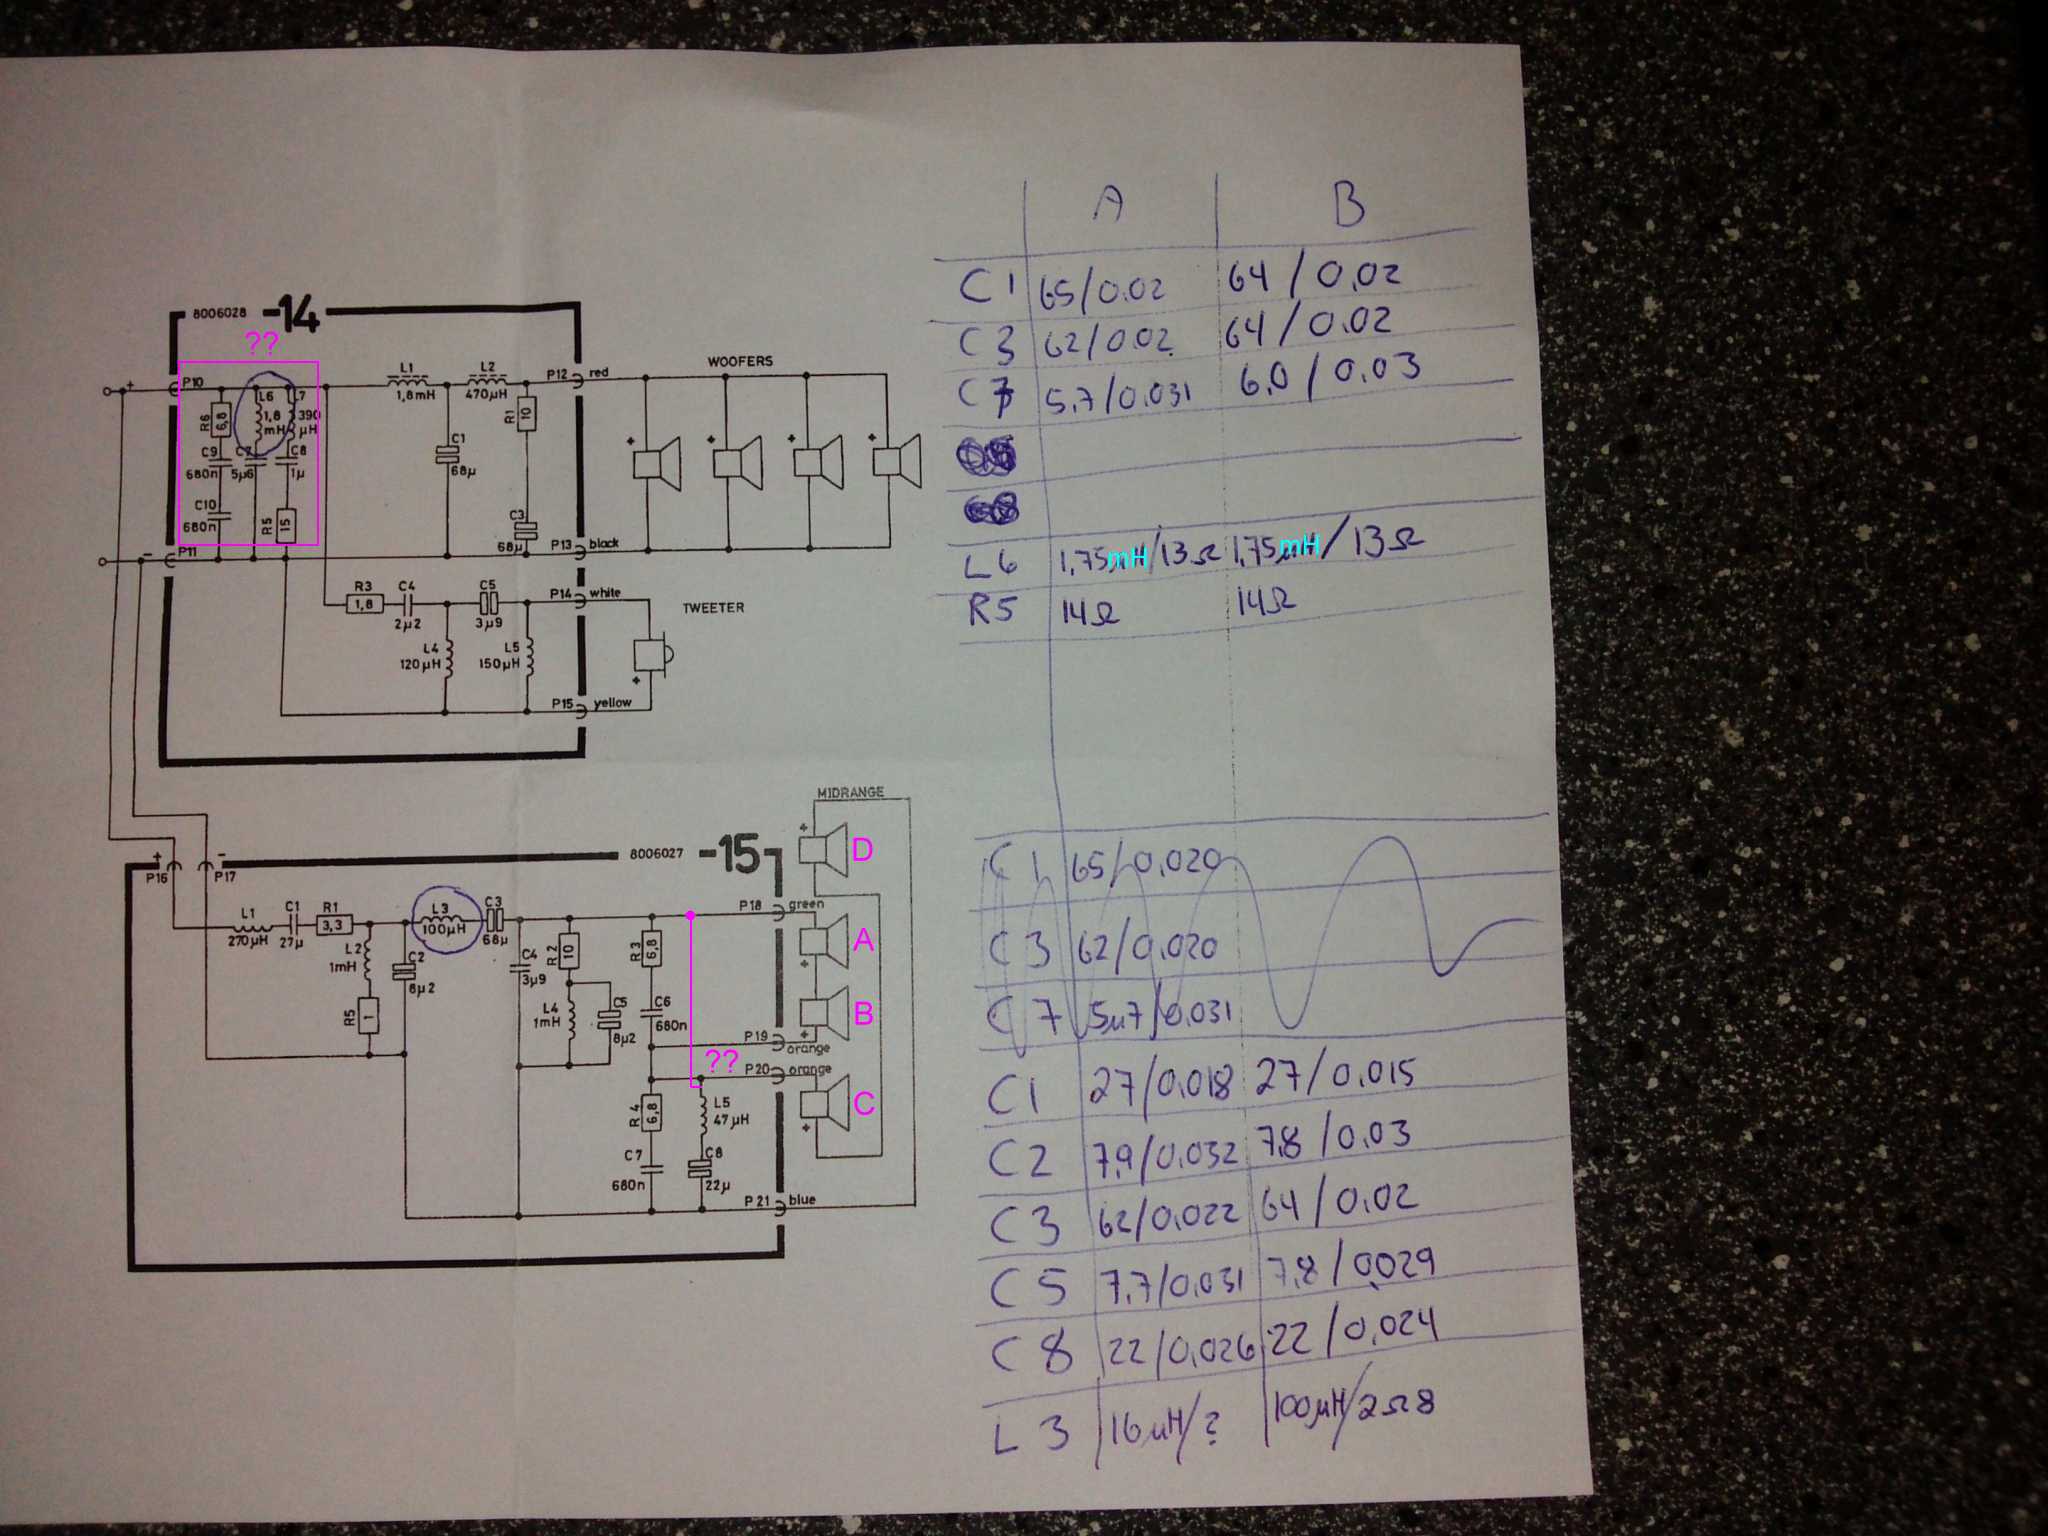 8006028 -14
??
P10
+
L1
1,8mH
L2
470µH
P12 red
WOOFERS
R6
6,8
L6
1,8
mH
L7
390
µH
R1
10
C9
680n
C7
5µ6
C8
1µ
C1
68µ
C10
680n
R5
15
C3
68µ
P13 black
-
P11
R3
1,8
C4
2µ2
C5
3µ9
P14 white
TWEETER
L4
120µH
L5
150µH
P15 yellow
MIDRANGE
D
8006027 -15
+
P16
-
P17
L1
270µH
C1
27µ
R1
3,3
L3
100µH
C3
68µ
P18 green
A
L2
1mH
C2
8µ2
C4
3µ9
R2
10
R3
6,8
R5
1
L4
1mH
C5
8µ2
C6
680n
B
P19
orange
??
P20 orange
C
R4
6,8
L5
47µH
C7
680n
C8
22µ
P21 blue
A B
C1 65/0.02 64/0,02
C3 62/0.02 64/0.02
C7 5,7/0,031 6,0/0,03
L6 1,75mH/13Ω 1,75mH/13Ω
R5 14Ω 14Ω
C1 65/0,020
C3 62/0,020
C7 5µ7/0,031
C1 27/0,018 27/0,015
C2 7,9/0,032 7,8/0,03
C3 62/0,022 64/0,02
C5 7,7/0,031 7,8/0,029
C8 22/0,026 22/0,024
L3 16µH/? 100µH/2Ω8